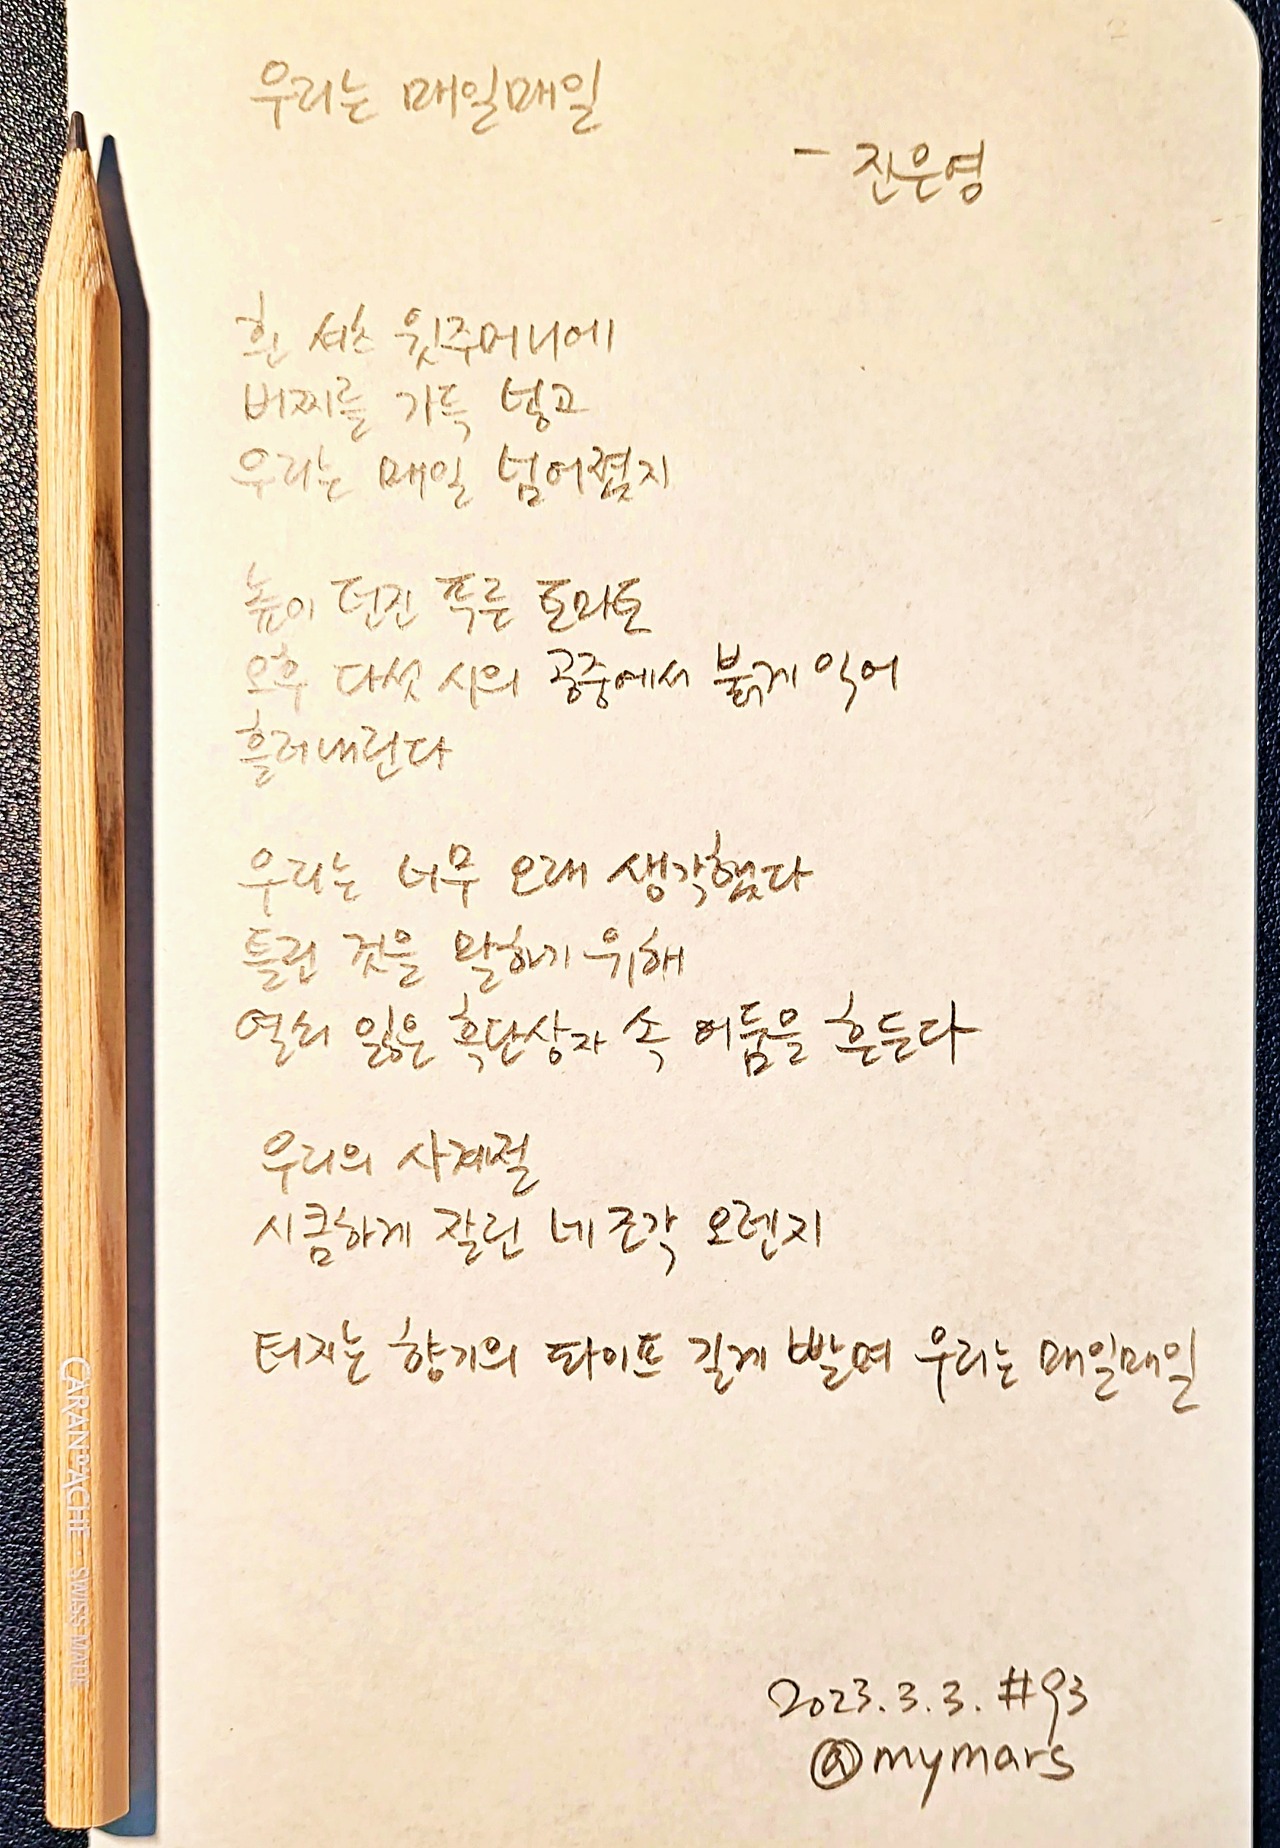 우리는 매일매일
- 진은영
흰 셔츠 윗주머니에
버찌를 가득 넣고
우리는 매일 넘어졌지
높이 던진 푸른 토마토
오후 다섯 시의 공중에서 붉게 익어
흘러내린다
우리는 너무 오래 생각했다
틀린 것을 말하기 위해
열쇠 잃은 흑단상자 속 어둠을 흔든다
우리의 사계절
시큼하게 잘린 네 조각 오렌지
터지는 향기의 파이프 길게 빨며 우리는 매일매일
2023.3.3. #93
@mymars
CARAN D'ACHE · SWISS MADE